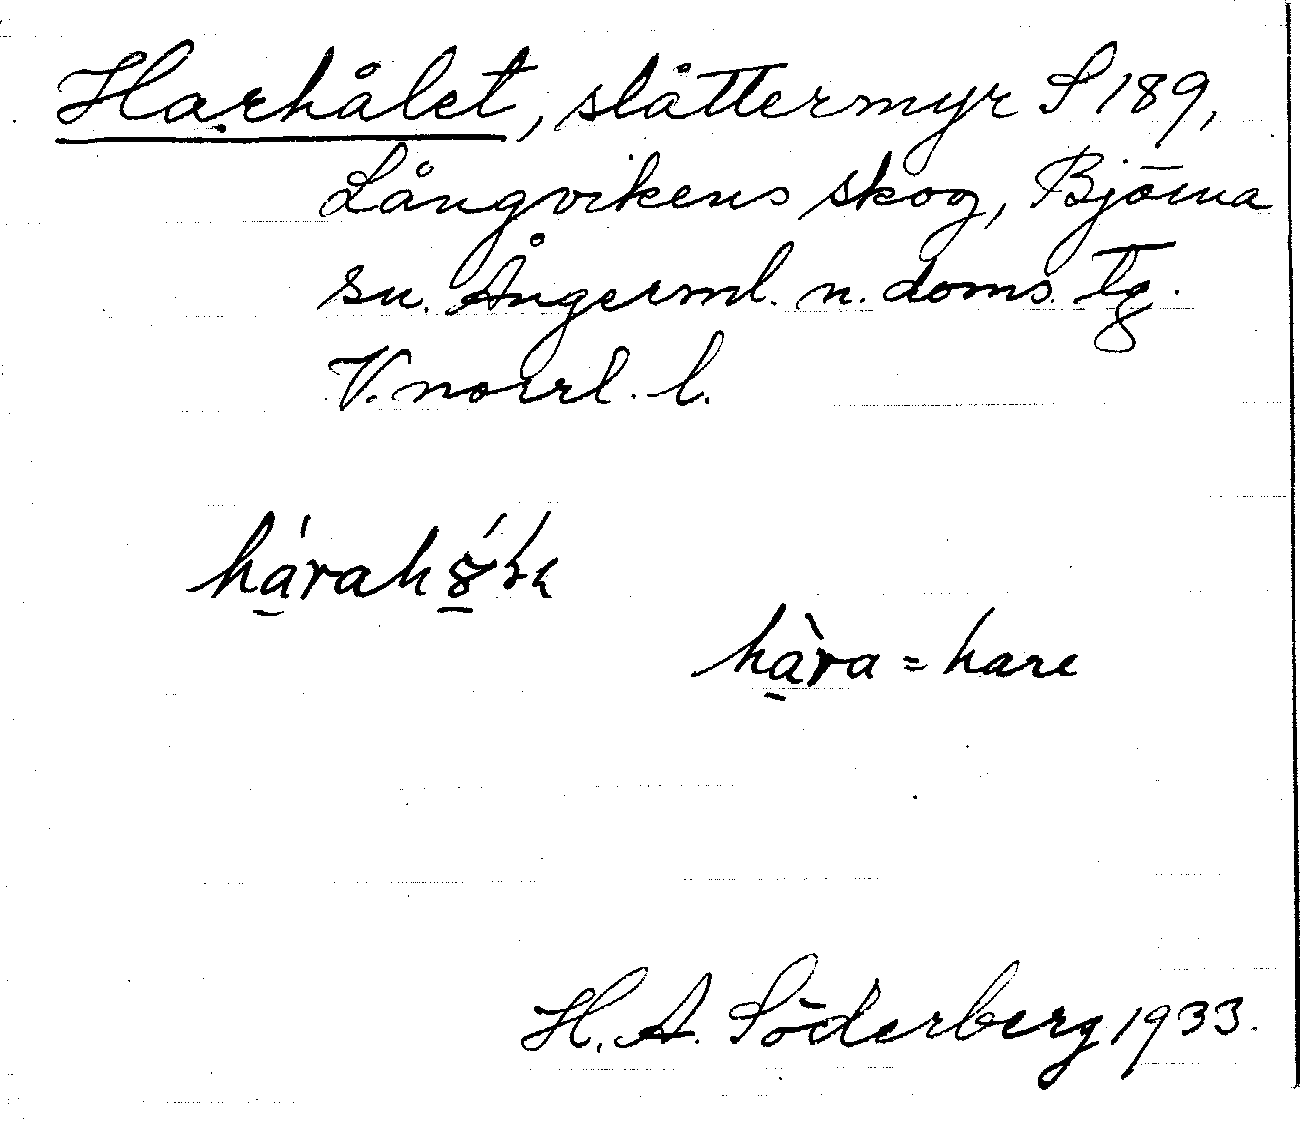 Harhålet, slåttermyr S 189,
Långvikens skog, Björna
sn. Ångerml. n. doms. tg.
V. norrl. l.
hàra = hare
H. A. Söderberg 1933.